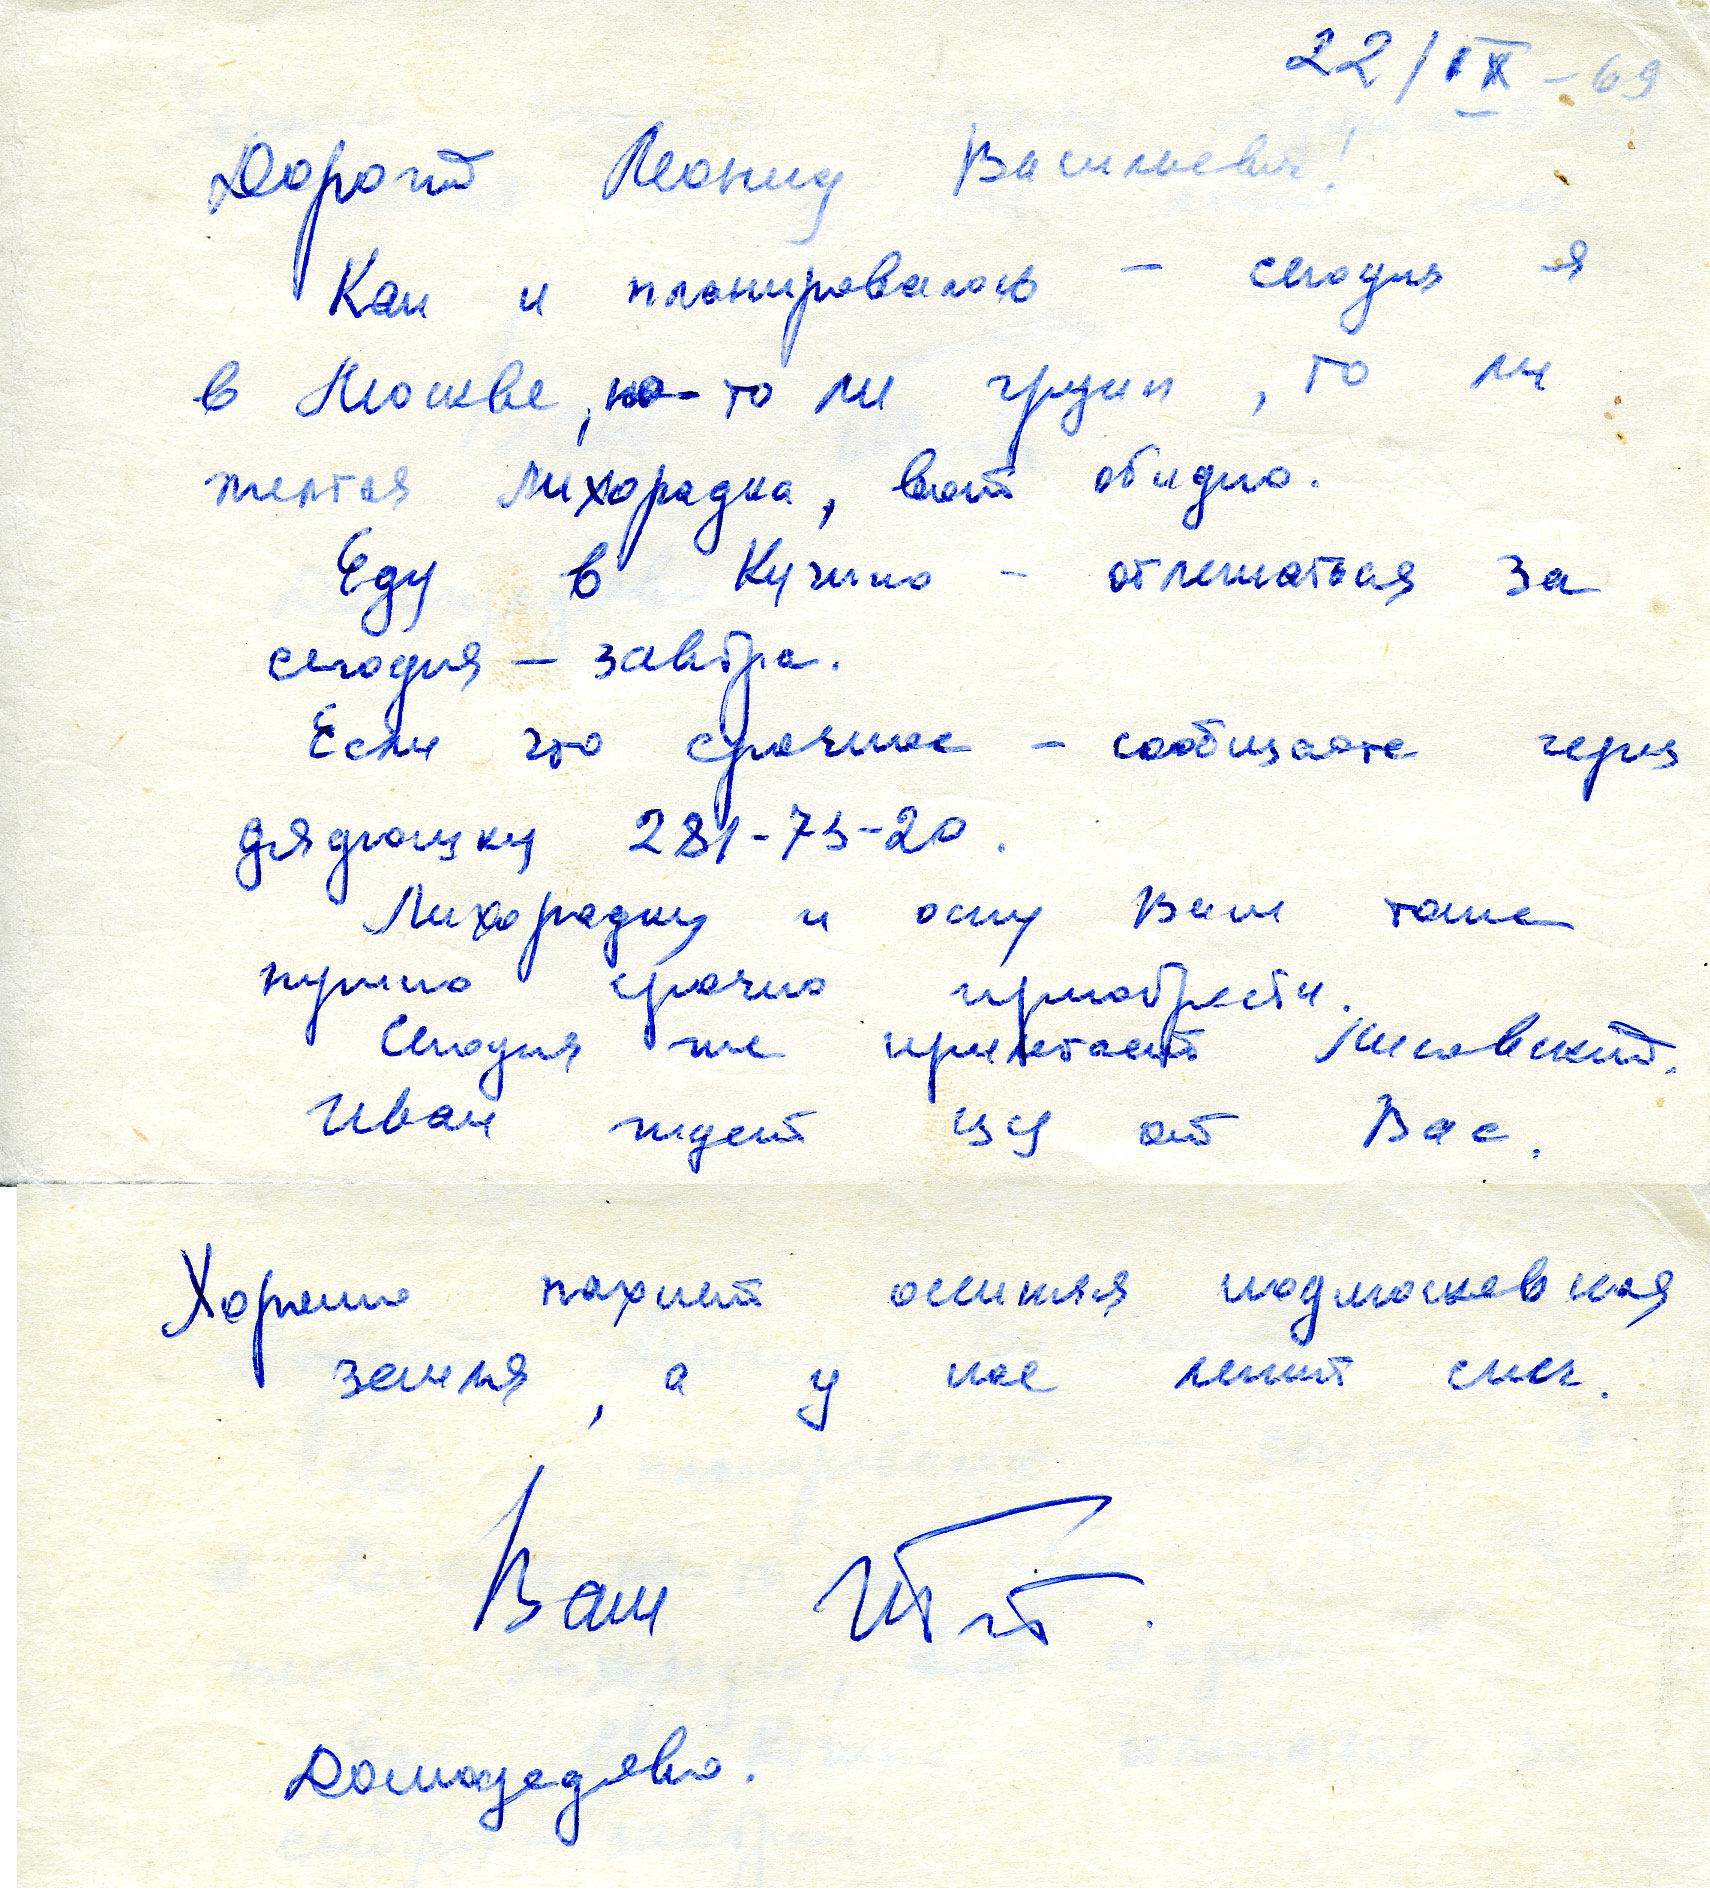 22/IX-69
Дорогой Леонид Васильевич!
Как и планировалось - сегодня я
в Москве, но - то ли грипп, то ли
желтая лихорадка, вот обидно.
Еду в Кучино - отлежаться за
сегодня - завтра.
Если что срочное - сообщайте через
дядюшку 281-73-20.
Лихорадку и оспу Вам тоже
нужно срочно приобрести.
Сегодня же прилетает Лисовский.
Иван ждет ЦУ от Вас.
Хорошо пахнет осенняя подмосковная
земля, а у нас лежит снег.
Ваш
Домодедово.